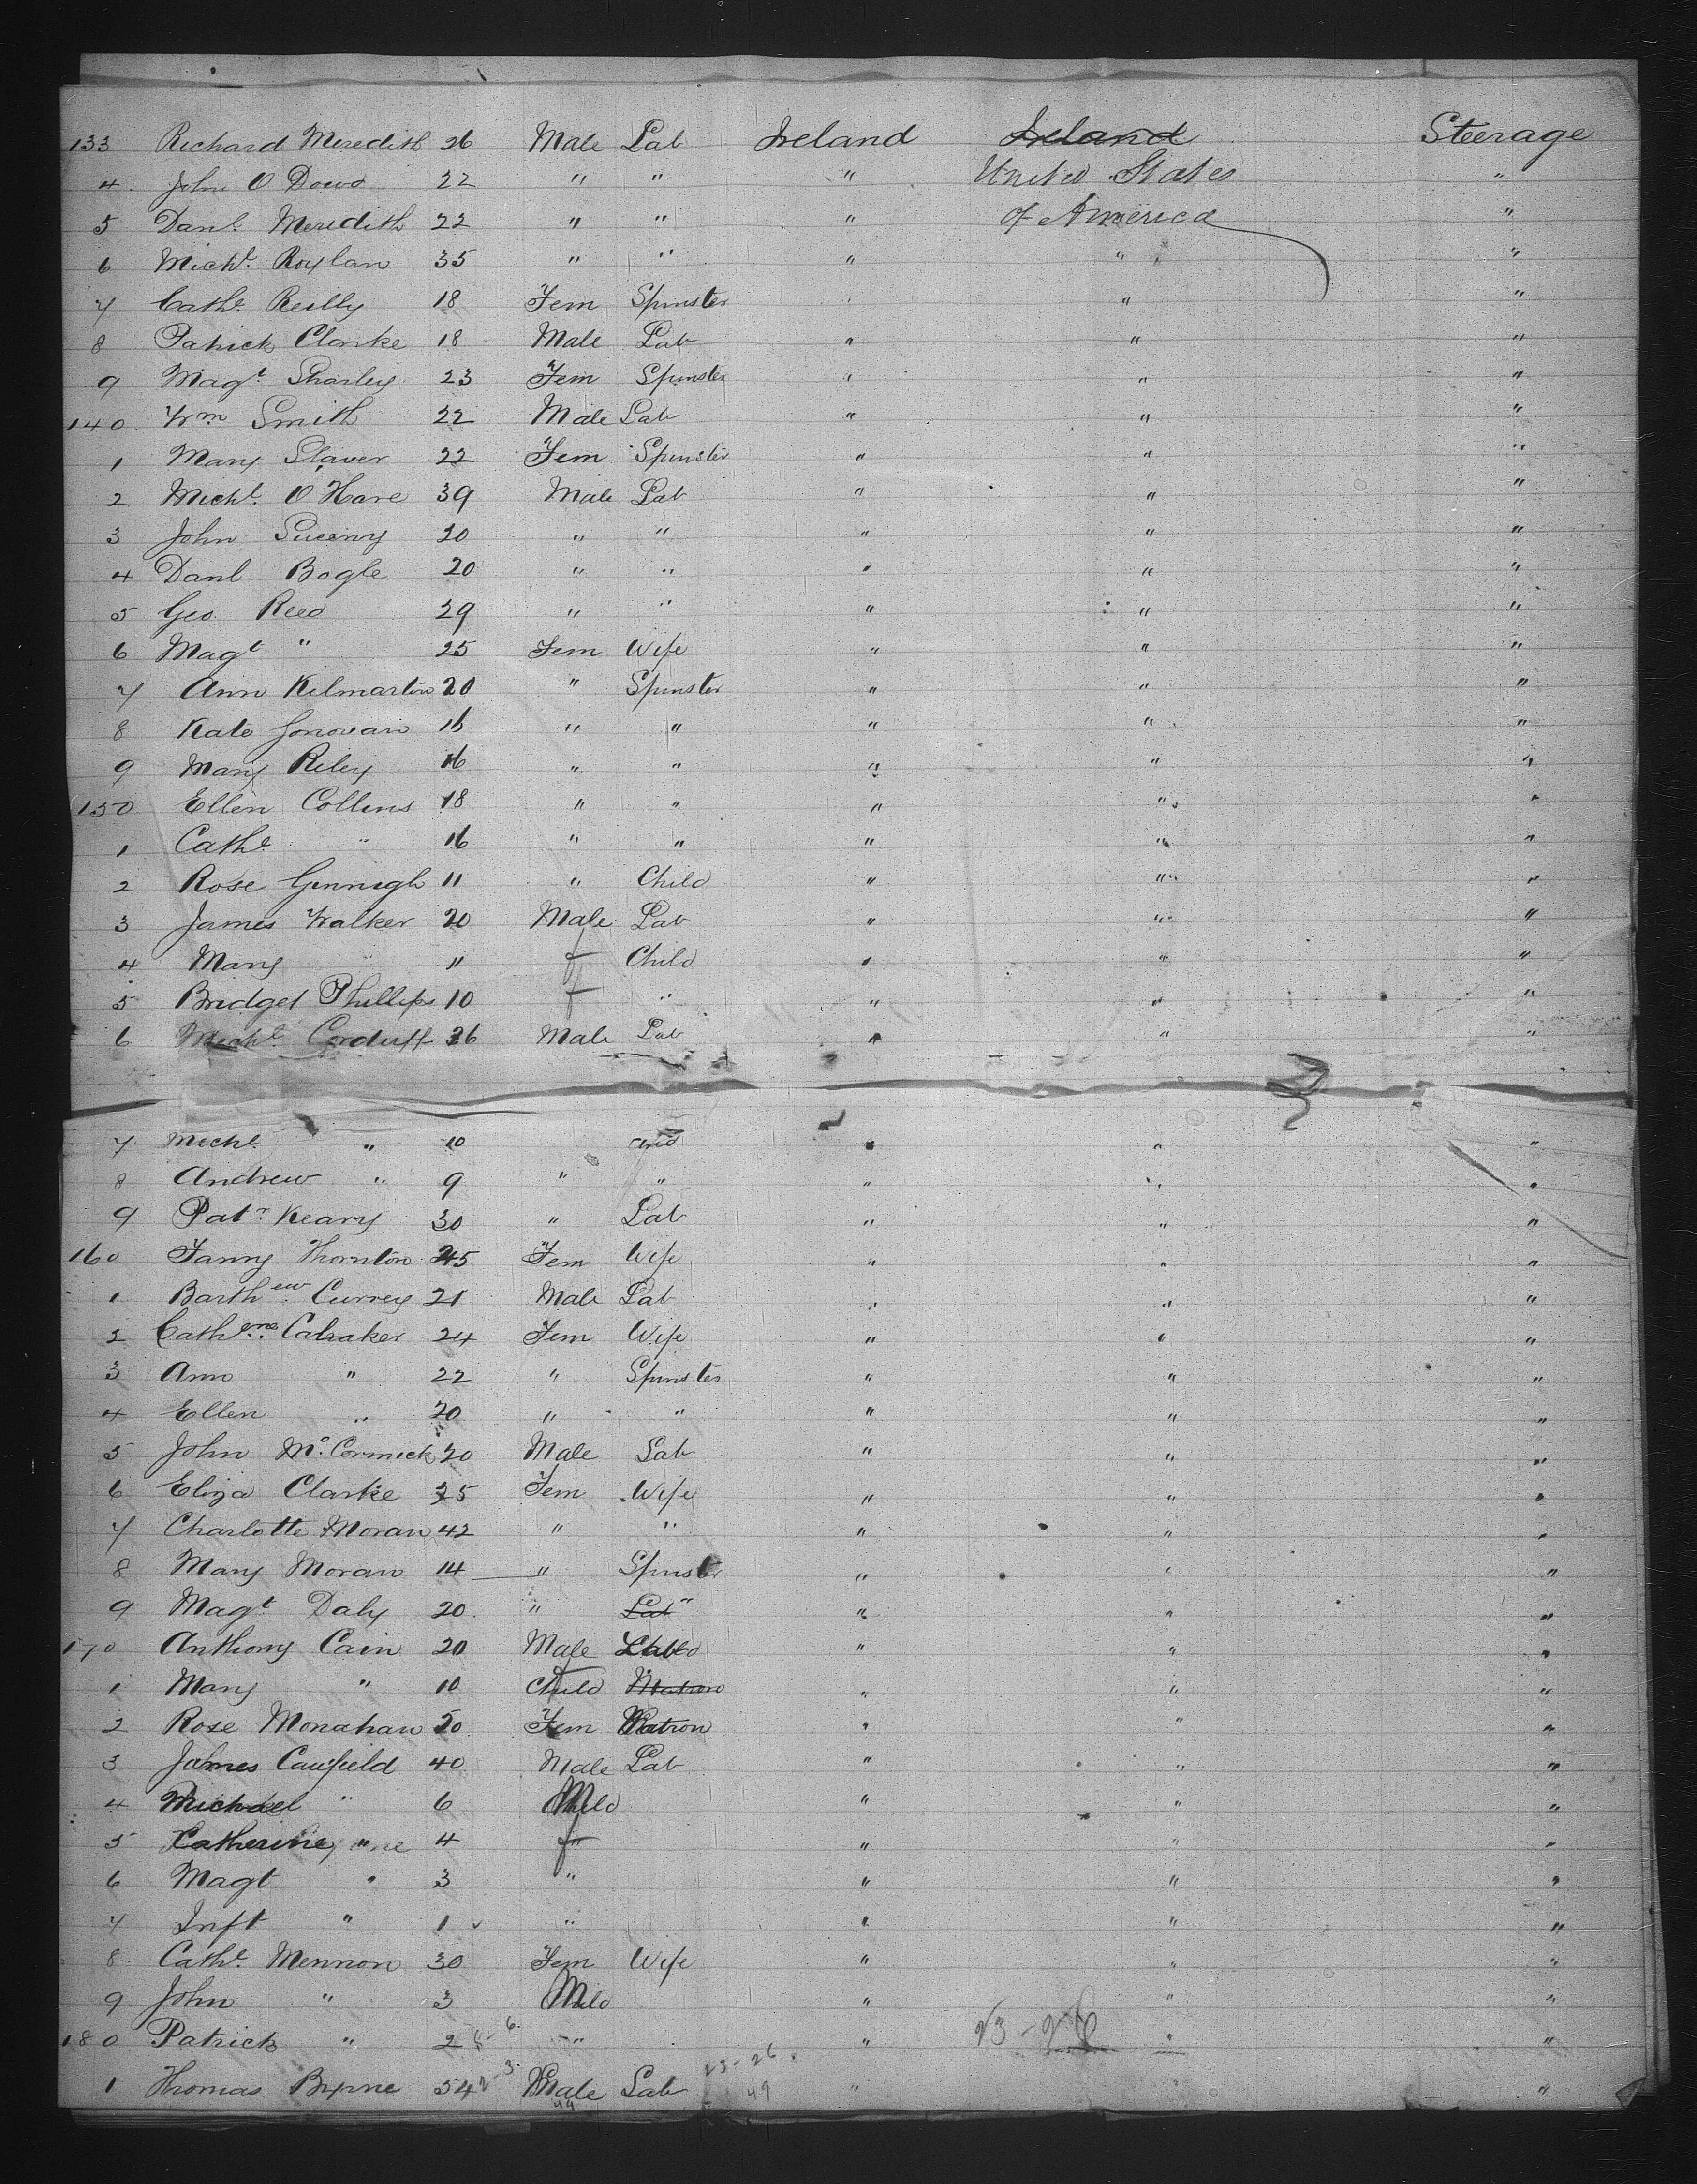 133 Richard Meredith 26 Male Lab Ireland Ireland Steerage
4 John O Dowd 22 " " " United States "
5 Danl. Meredith 22 " " " of America "
6 Michl. Roylan 35 " " " " "
7 Cathe. Reilly 18 Fem Spinster " " "
8 Patrick Clarke 18 Male Lab " " "
9 Magt. Sharley 23 Fem Spinster " " "
140 Wm Smith 22 Male Lab " " "
1 Mary Slaver 22 Fem Spinster " " "
2 Michl. O Hare 39 Male Lab " " "
3 John Sweeny 20 " " " " "
4 Danl Bogle 20 " " " " "
5 Geo. Reed 29 " " " " "
6 Magt " 25 Fem Wife " " "
7 Ann Kilmartin 20 " Spinster " " "
8 Kate Gonovan 16 " " " " "
9 Mary Riley 16 " " " " "
150 Ellen Collins 18 " " " " "
1 Cathe. " 16 " " " " "
2 Rose Ginnigh 11 " Child " " "
3 James Walker 20 Male Lab " " "
4 Mary " " f Child " " "
5 Bridget Phillips 10 f " " " "
6 Michl. Corduff 36 Male Lab " " "
7 Michl. " 10 " " "
8 Andrew " 9 " " " " "
9 Patr. Keary 30 " Lab " " "
160 Fanny Thornton 45 Fem Wife " " "
1 Barthew. Currey 21 Male Lab " " "
2 Catherne. Calraker 24 Fem Wife " " "
3 Ann " 22 " Spinster " " "
4 Ellen " 20 " " " " "
5 John Mc. Cormick 20 Male Lab " " "
6 Eliza Clarke 25 Fem Wife " " "
7 Charlotte Moran 42 " " " " "
8 Mary Moran 14 " Spinster " " "
9 Magt Daly 20 " Lab " " " "
170 Anthony Cain 20 Male Lab " " "
1 Mary " 10 Child Matron " " "
2 Rose Monahan 50 Fem Matron " " "
3 James Caufield 40 Male Lab " " "
4 Michael " 6 M " " "
5 Catherine " 4 f " " "
6 Magt " 3 " " " "
7 Inft " 1 " " " "
8 Cathe. Mennon 30 Fem Wife " " "
9 John " 3 M " " "
180 Patrick " 2 " " "
1 Thomas Byrne 54 Male Lab 23-26 49 " "
49